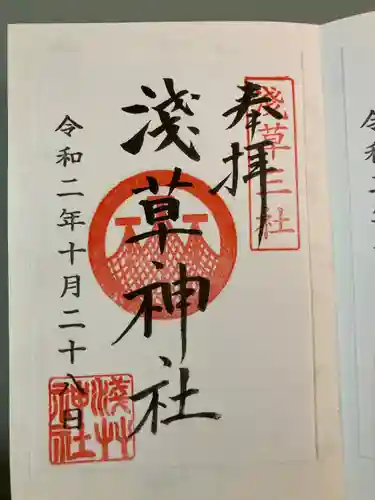 奉拝
淺草三社
淺草神社
令和二年十月二十八日
淺草神社